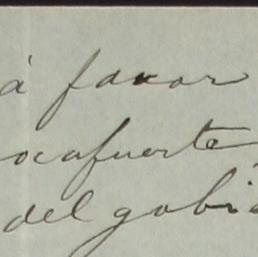 á favor
ocafuerte
del gobi